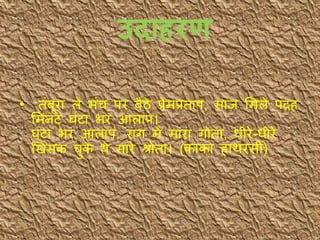 उदाहरण
• तंबूरा ले मंच पर बैठे प्रेमप्रताप, साज मिले पंद्रह
मिनट घंटा भर आलाप।
घंटा भर आलाप, राग में मारा गोता, धीरे-धीरे
खिसक चुके थे सारे श्रोता। (काका हाथरसी)